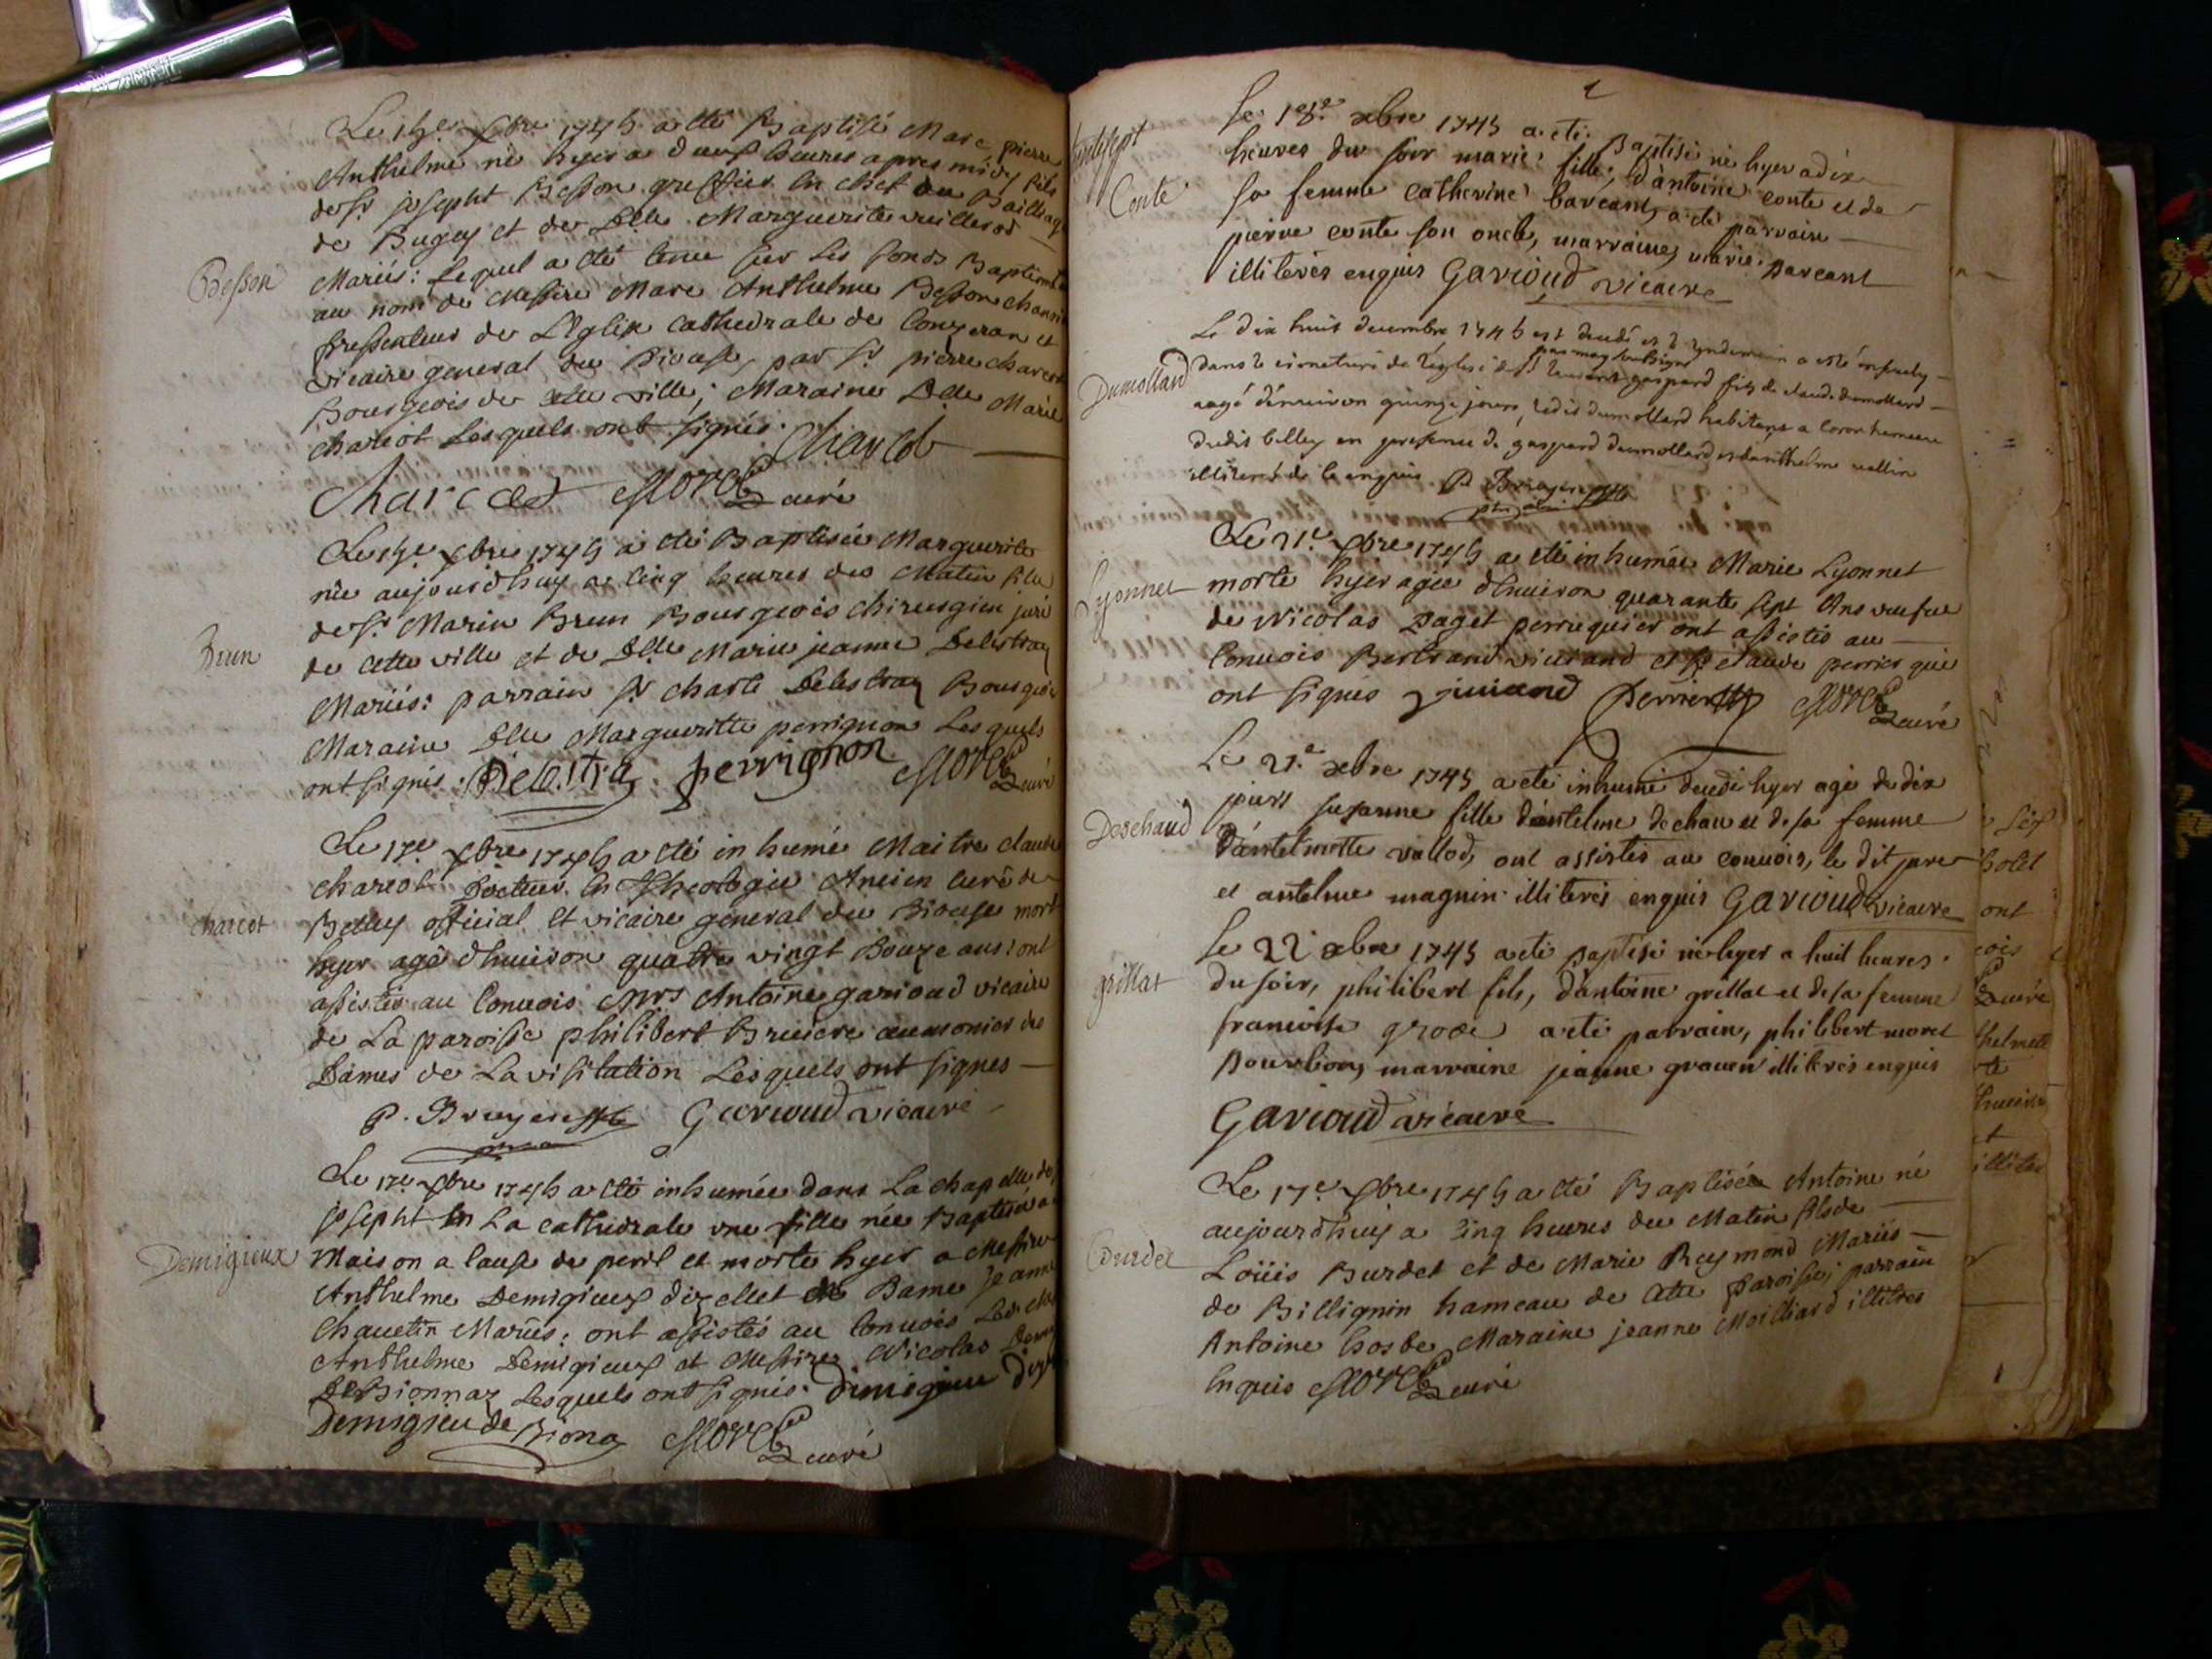 Besson
Le 15e xbre 1745 a été Baptisé Marc pierre
Anthelme né hyer a deux heures apres midy fils
de Sr josepht Besson greffier En chef au Bailliage
de Bugey et de Dlle Marguerite vuillerod
Mariés: Lequel a été tenu sur Les fonds Baptismaux
au nom de Messire Marc Anthelme Besson chanoine
de L'Eglise Cathedrale de Conzeran et
vicaire general du Diocese, par Sr pierre charcot
Bourgeois de cette ville; Maraine Dlle Marie
charcot Lesquels ont signés. Charcot
Charcot Morel curé
Brun
Le 15e xbre 1745 a été Baptisée Marguerite
née aujourdhuy a cinq heures du Matin fille
de Sr Marin Brun Bourgeois chirurgien juré
de cette ville et de Dlle Marie jeanne Delestraz
Mariés: parrain Sr charle Delestraz Bourgeois
Maraine Dlle Margueritte perrignon Lesquels
ont signés. Delestra perrignon Morel curé
charcot
Le 17e xbre 1745 a été inhumé Maitre claude
charcot Docteur En Theologie Ancien curé de
Belley official Et vicaire general du Diocese mort
hyer agé d'huiron quatre vingt Douze ans: ont
assistés au Convois Mrs Antoine garioud vicaire
de La paroisse philibert Bruiere aumonier des
Dames de La visitation Lesquels ont signes
P. Bruyere ptre Garioud vicaire
Demigieux
Le 17e xbre 1745 a été inhumée dans La chapelle de
josepht En La cathedrale une fille née Baptisée a
Maison a Cause de peril et morte hyer a Messire
Anthelme Demigieux et de Dame jeanne
Chauetin Mariés: ont assistés au Convois
Anthelme Demigieux et Messire Nicolas
Lesquels ont signés. Demigieu
Demigieu de Biona Morel curé
Conte
Le 18e xbre 1745 a été Baptisé né hyer a dix
heures du soir marie fille, d'antoine conte et de
sa femme catherine bareant, a été parrain
pierre conte son oncle, marraine, marie bareant
illiterés enquis Garioud vicaire
Dumollard
Le dix huit decembre 1745 est decedé et le lendemain a esté ensevely
par moy soubsigné
dans le cimetiere de l'eglise de St laurent gaspard fils de claude dumollard
aagé d'environ quinze jours, ledit dumollard habitant a coron hameau
dudit belley en presence de gaspard dumollard et danthelme vallin
illiterés de ce enquis P. Bruyere ptre
Lyonnet
Le 21e xbre 1745 a été inhumée Marie Lyonnet
morte hyer agée d'huiron quarante sept Ans veufue
de Nicolas Paget perruquier ont assistés au
Convois Bertrand viurand et Sr claude perrier qui
ont signés viuiand perrier Morel curé
Deschaud
Le 21e xbre 1745 a été inhumé decedé hyer agé de dix
jours suzanne fille d'antelme dechau et de sa femme
D'antelmette vallod, ont assistés au convois, le dit pere
et antelme magnin illiterés enquis Garioud vicaire
grillat
Le 22 xbre 1745 a été Baptisé né hyer a huit heures
du soir, philibert fils, d'antoine grillat et de sa femme
francoise groze a été parrain, philibert morel
Bourbon, marraine jeanne grauen illiterés enquis
Garioud vicaire
Burdet
Le 17e xbre 1745 a été Baptisée Antoine né
aujourdhuy a Cinq heures du Matin fils de
Loüis Burdet et de Marie Reymond Mariés
de Billignin hameau de cette paroisse; parrain
Antoine hoste Maraine jeanne Moilliard illitres
Enquis Morel curé